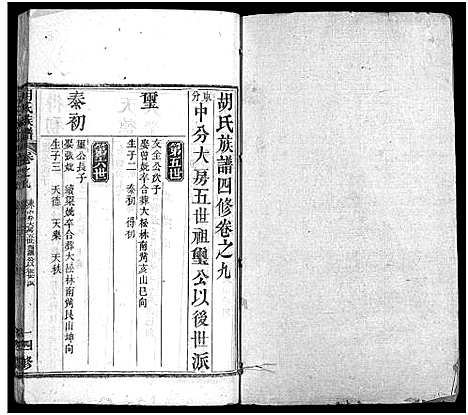 胡氏族譜四修卷之九
東分中分大房五世祖璽公以後世派
第五世
璽
文全公次子
娶曾氏卒合葬大松林南嶲亥山巳向
生子二 泰初 得初
第六世
泰初
璽公長子
娶張姚 續梁姚卒合葬大松林南嶲艮山坤向
生子三 天德 天榮 天秋
胡氏族譜
卷之九
四修